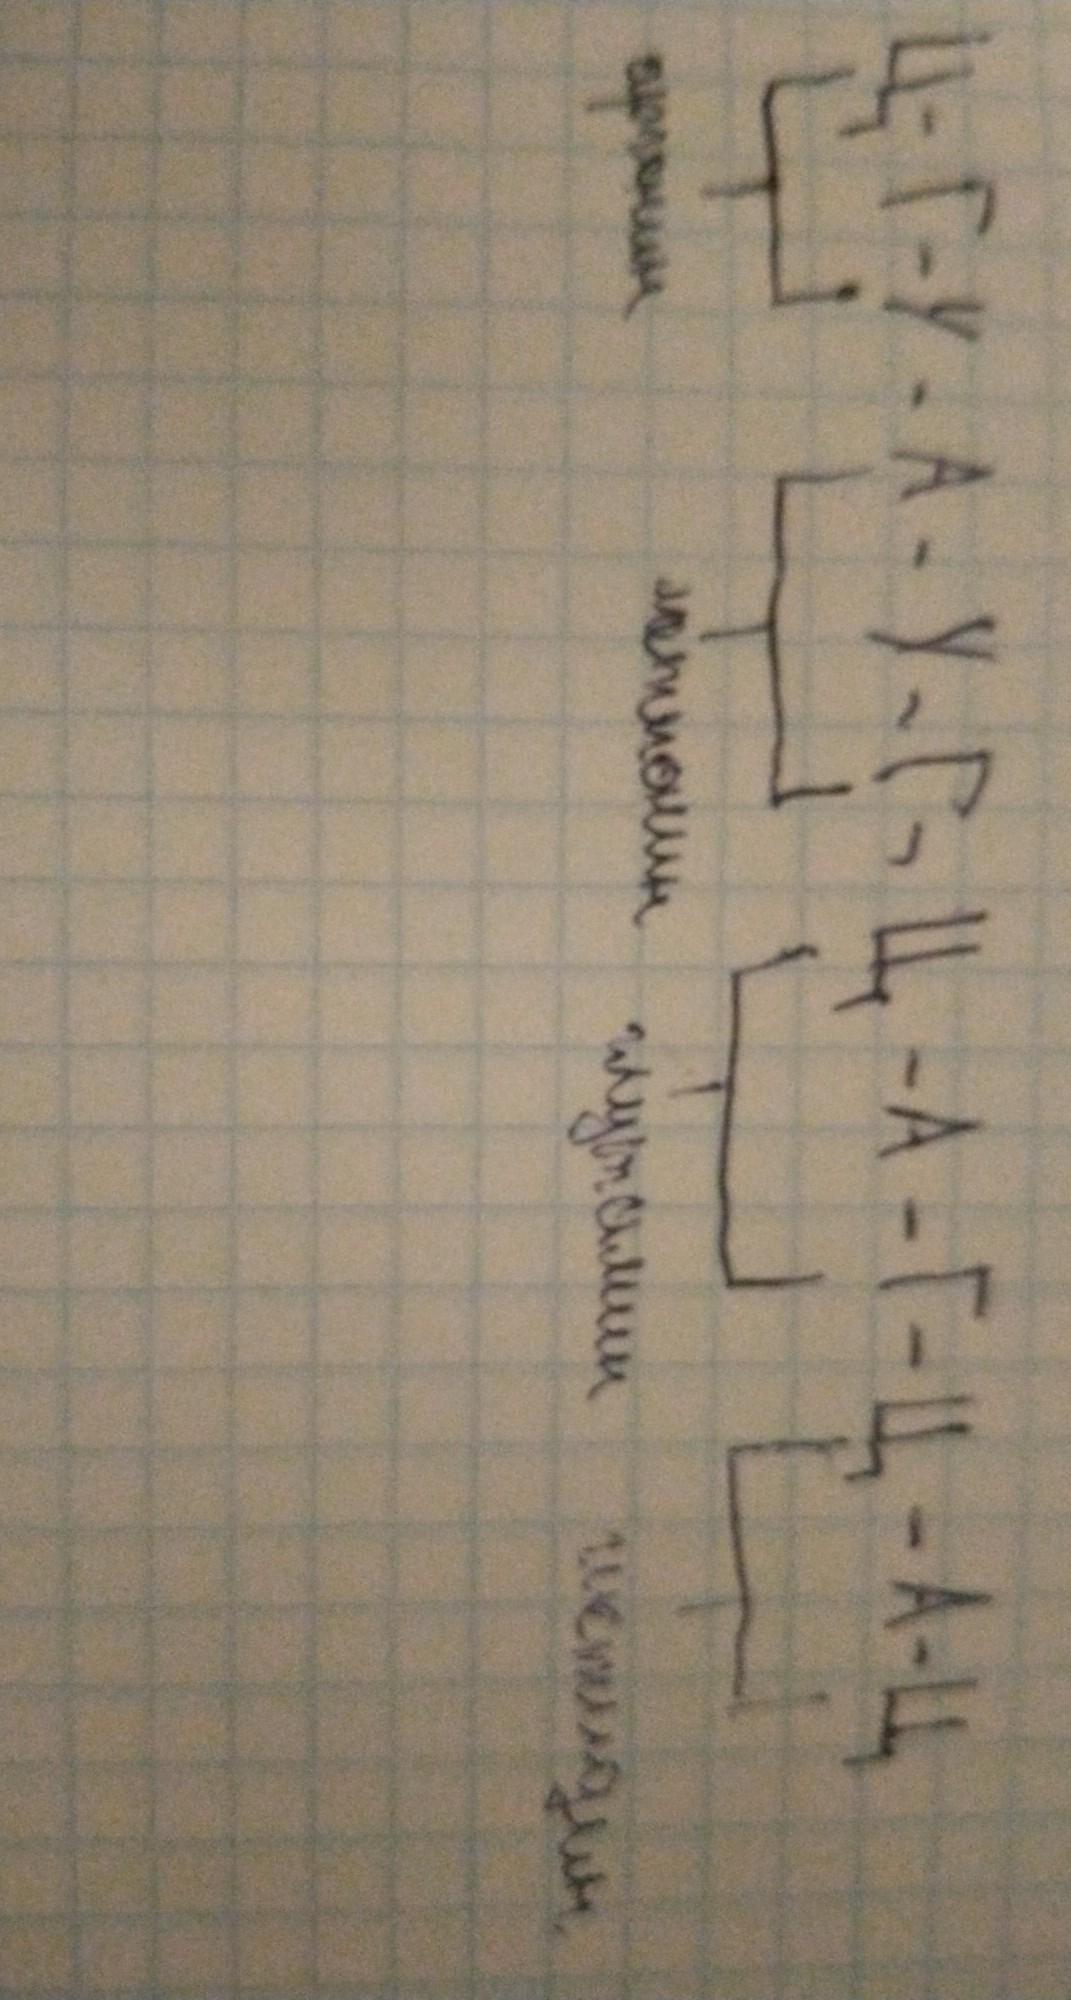 Ц-Г-У-А-У-Г-Ц-А-Г-Ц-А-Ц
аргинин метионин глутамин гистидин